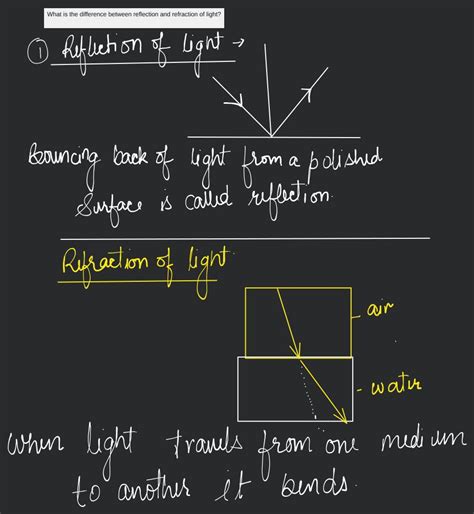 What is the difference between reflection and refraction of light?
1 Reflection of light →
Bouncing back of light from a polished
Surface is called reflection.
Refraction of light.
air
water
When light travels from one medium
to another it bends.